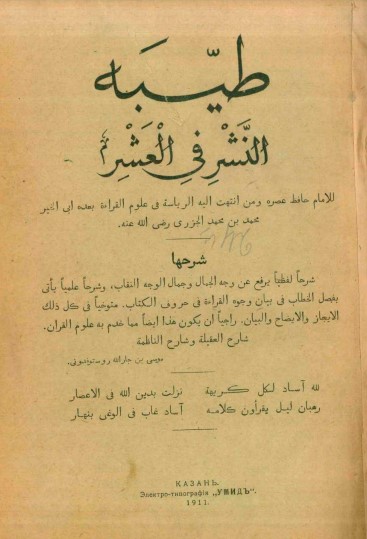 طيّبه
النَّشْرِ فِي الْعَشْرِ
للامام حافظ عصره ومن انتهت اليه الرياسة فى علوم القراءة بعده ابى الخير
محمد بن محمد الجزرى رضى الله عنه.
شرحها
شرحاً لفظياً يرفع عن وجه الجمال وجمال الوجه النقاب، وشرحاً علمياً يأتى
بفصل الخطاب فى بيان وجوه القراءة فى حروف الكتاب. متوخياً فى كل ذلك
الايجاز والايضاح والبيان. راجياً ان يكون هذا ايضاً مما خدم به علوم القران.
شارح العقيلة وشارح الناظمة
موسى بن جارالله روستوفدونى.
لله آساد لكل كريهة نزلت بدين الله فى الاعصار
رهبان ليل يقرأون كلامه آساد غاب فى الوغى بنهار
КАЗАНЬ.
Электро-типографія „УМИДЪ“.
1911.